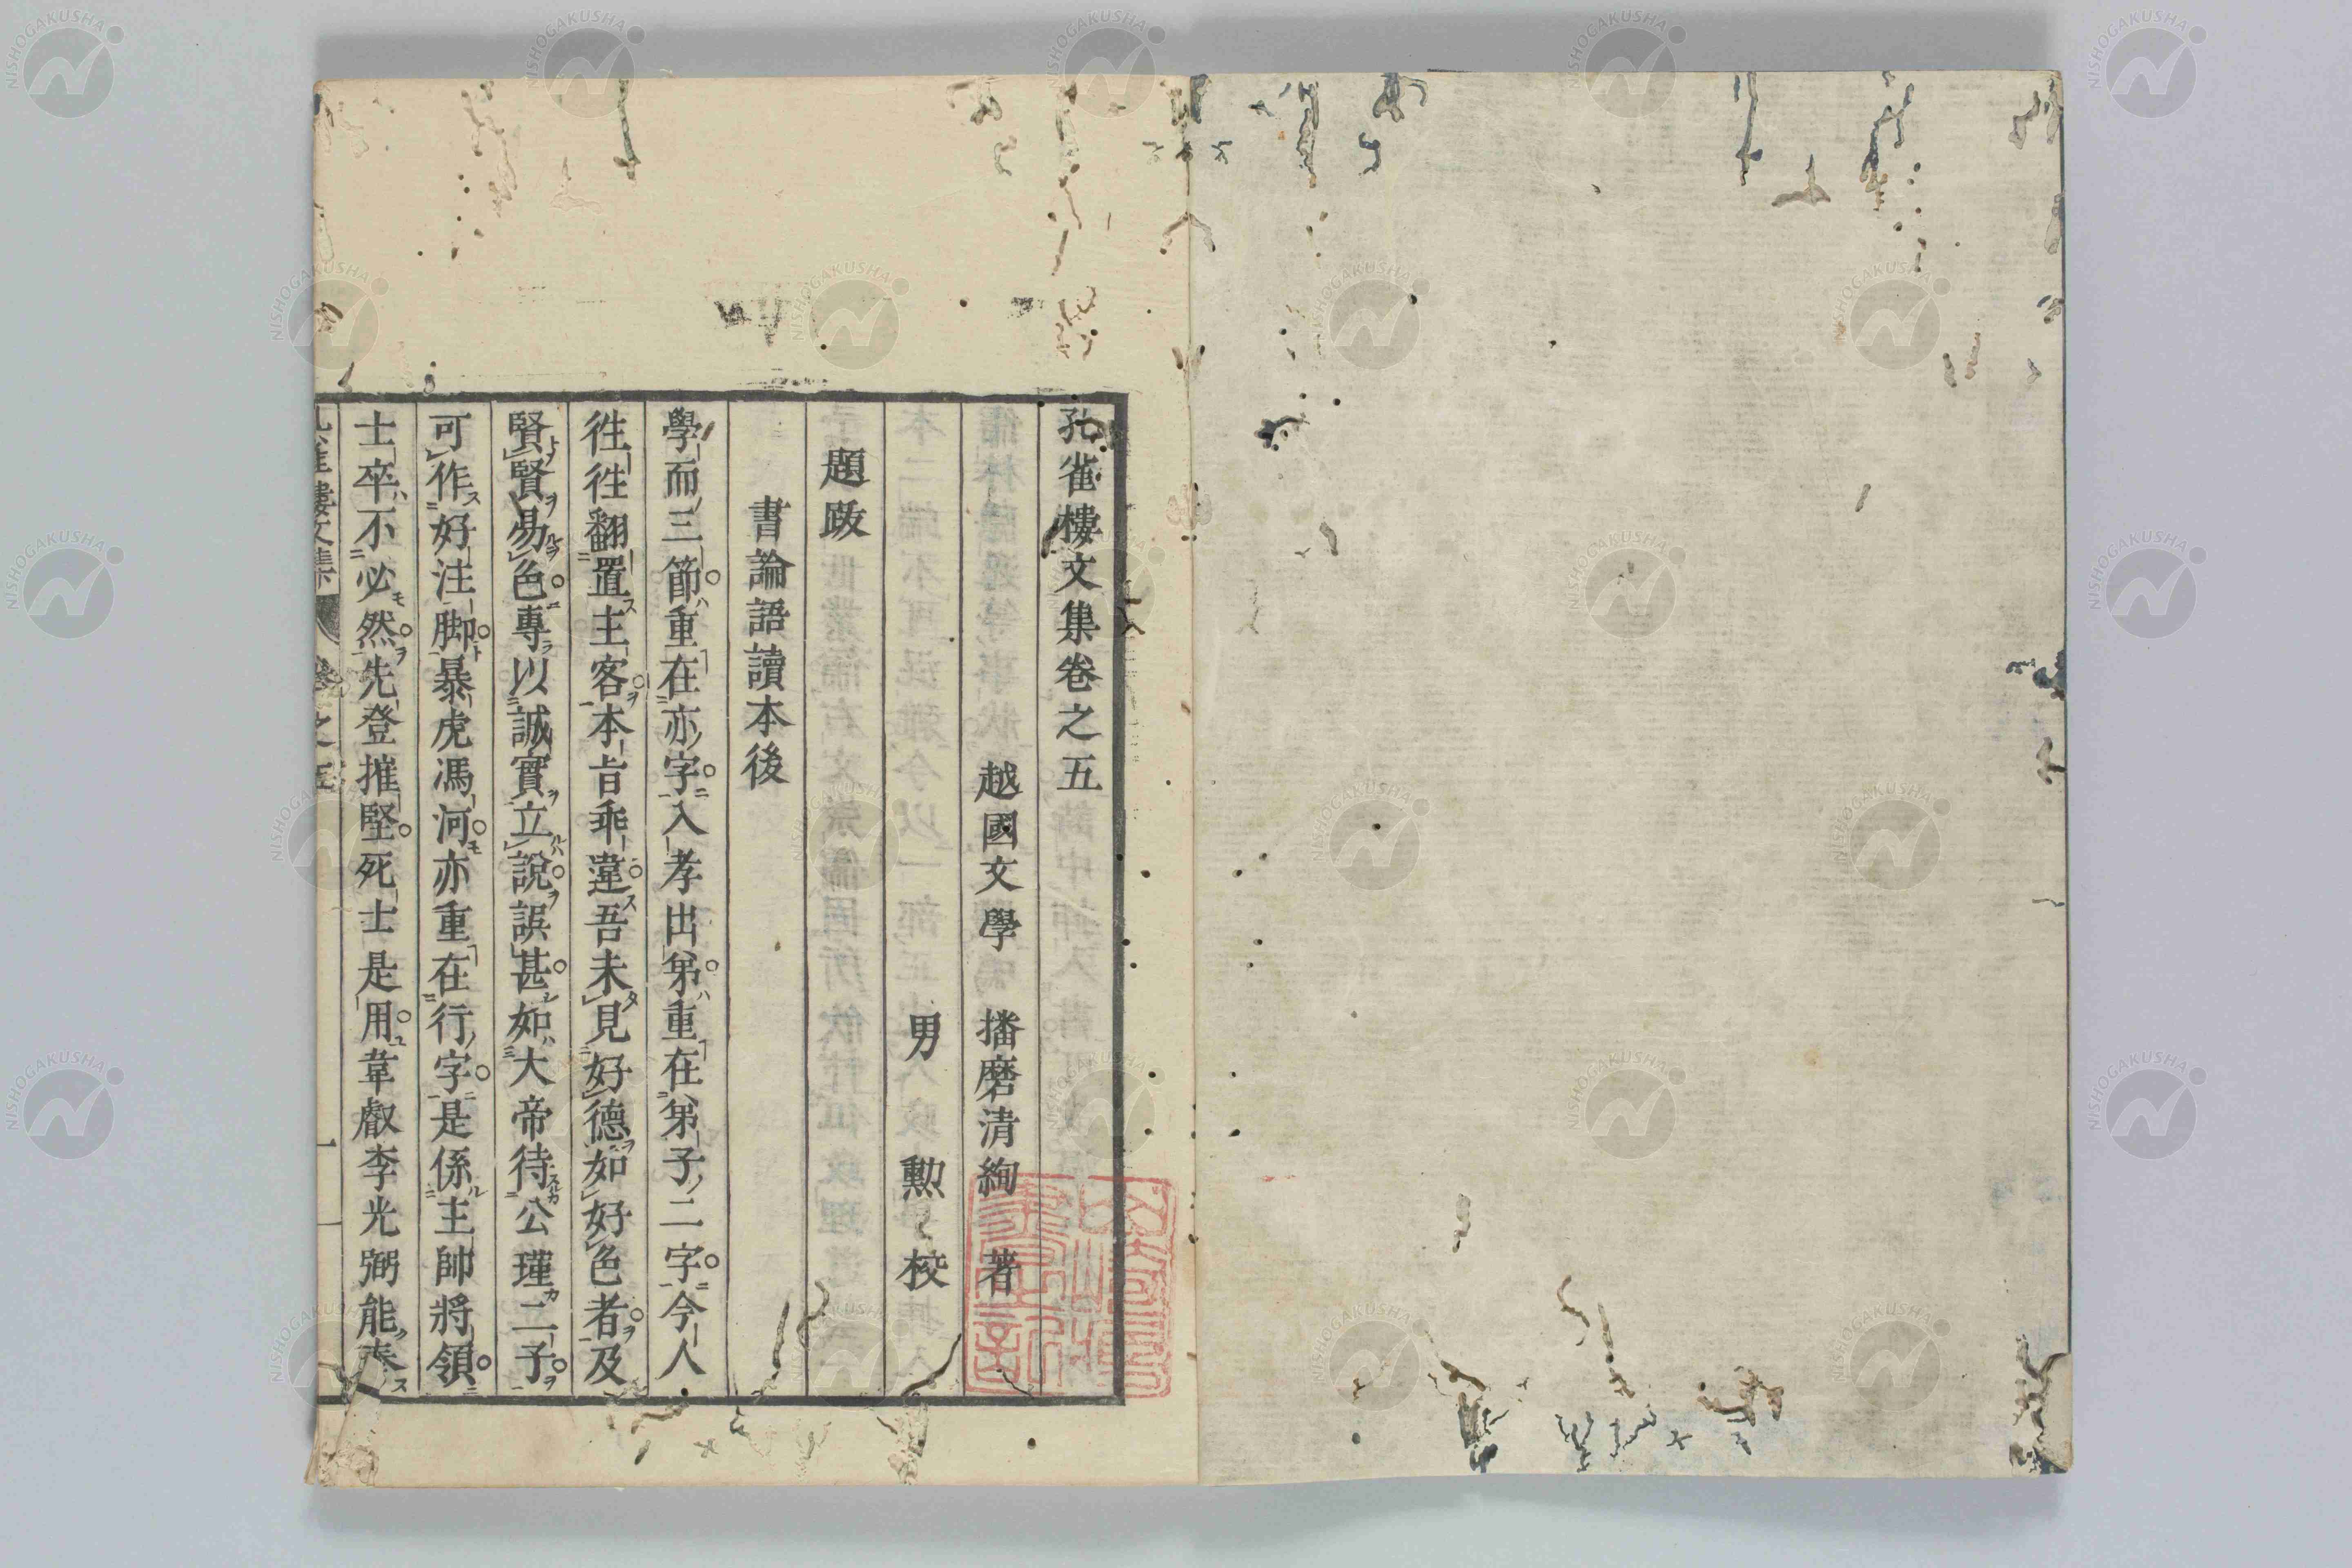 孔雀樓文集卷之五
越國文學 播磨清絢 著
男 勲 校
題跋
書論語讀本後
學而三節重在亦字入孝出弟重在弟子二字今人
徃徃翻置主客本旨乖違吾未見好德如好色者及
賢賢易色專以誠實立說誤甚如大帝待公瑾二子
可作好注脚暴虎馮河亦重在行字是係主帥將領
士卒不必然先登摧堅死士是用韋叡李光弼能奏
孔雀樓文集 卷之五 一
NISHOGAKUSHA